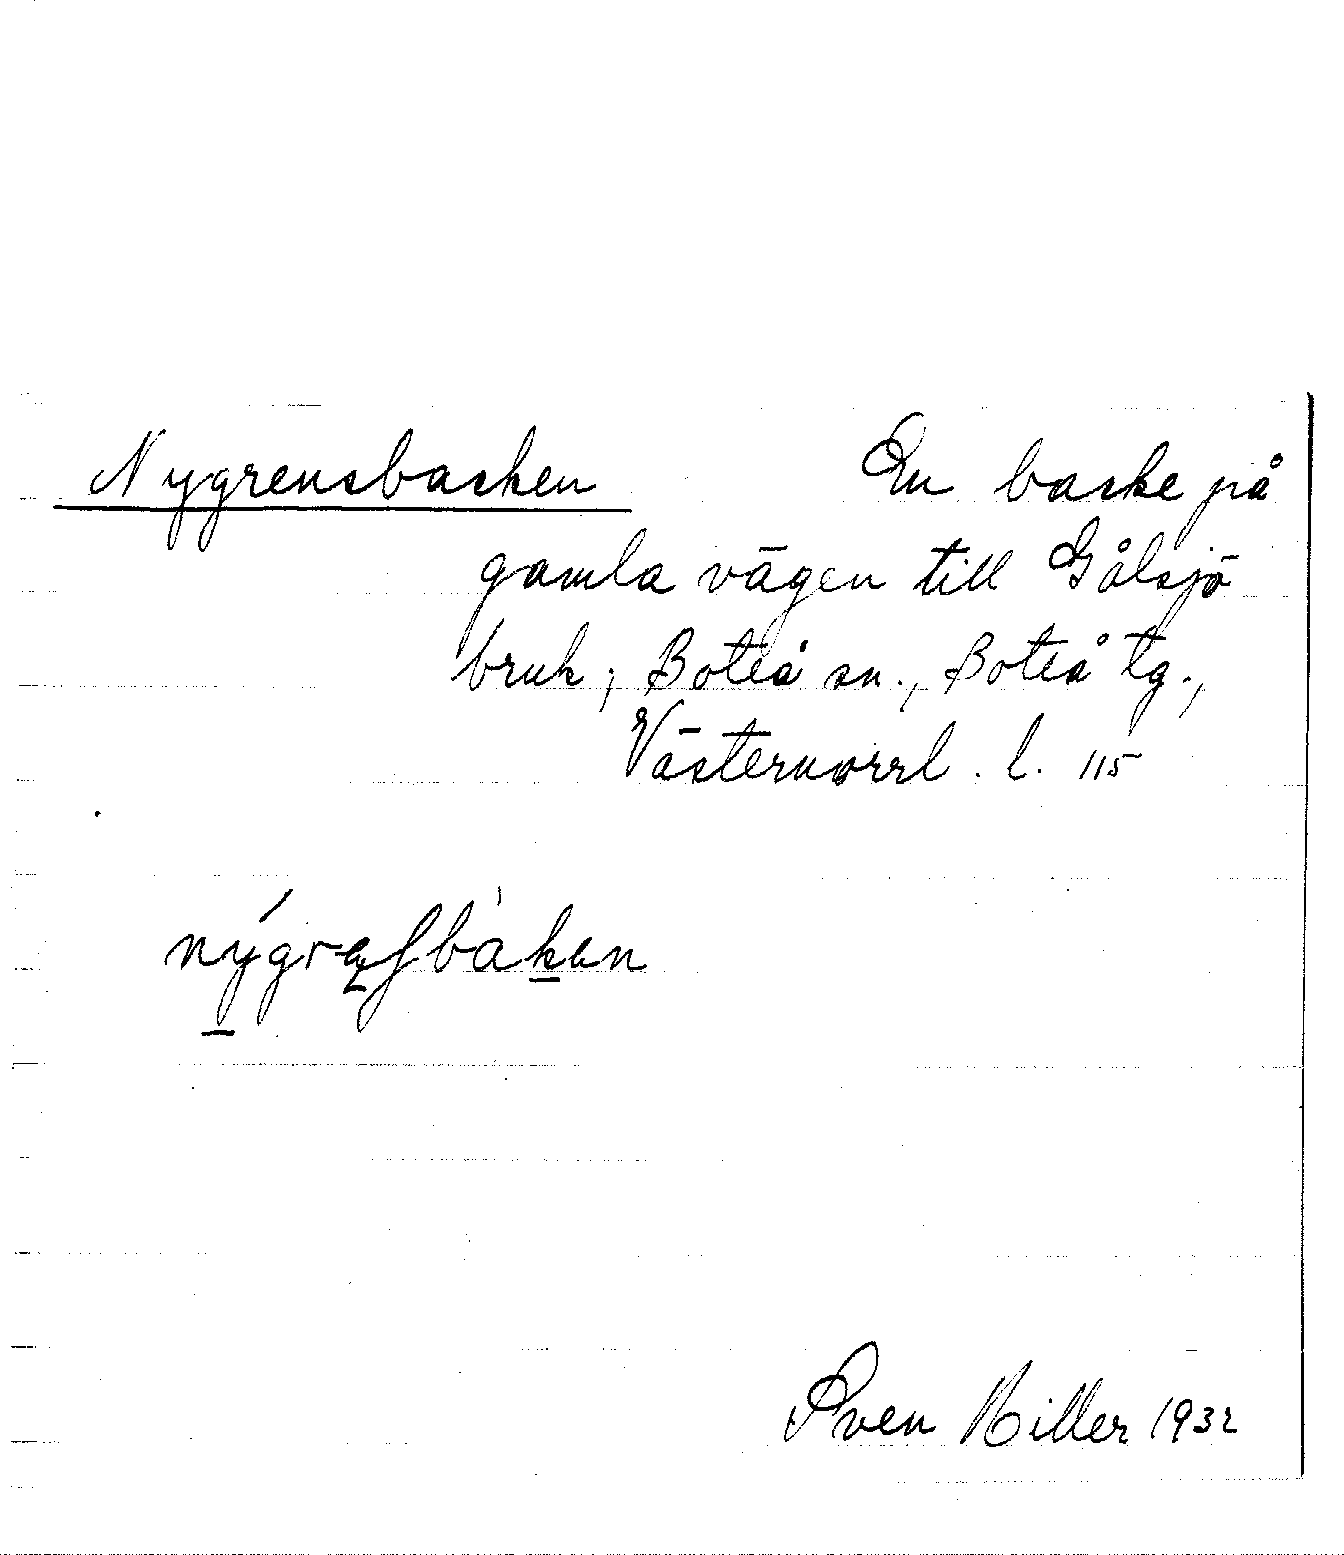 Nygrensbacken En backe på
gamla vägen till Gålsjö
bruk; Boteå sn., Boteå tg.,
Västernorrl. l. 115
Sven Hiller 1932